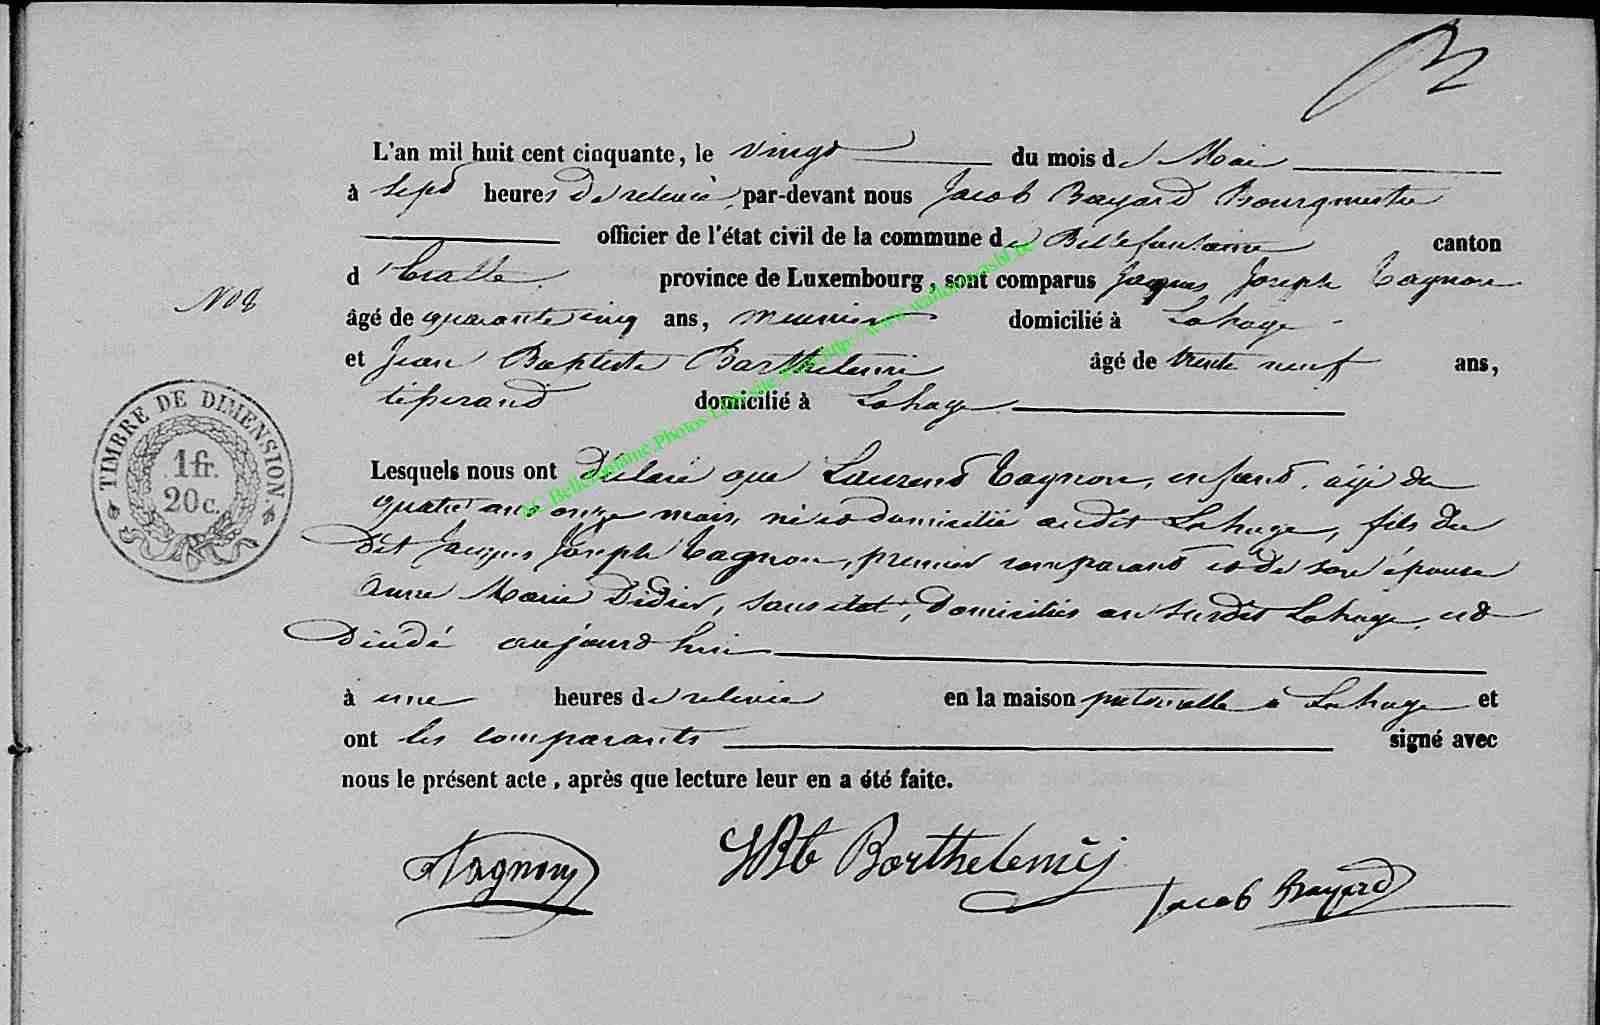 L'an mil huit cent cinquante, le vingt du mois de Mai
à sept heures de relevée, par-devant nous Jacob Bayard Bourgmestre
officier de l'état civil de la commune de Bellefontaine canton
d'Etalle province de Luxembourg, sont comparus Jacques Joseph Tagnon
N° 8
âgé de quarante cinq ans, meunier domicilié à Lahage
et Jean Baptiste Barthelemi âgé de trente neuf ans,
tisserand domicilié à Lahage
TIMBRE DE DIMENSION.
1 fr.
20 c.
Lesquels nous ont déclaré que Laurent Tagnon, enfant, agé de
quatre ans onze mois, né et domicilié audit Lahage, fils du
dit Jacques Joseph Tagnon, premier comparant et de son épouse
Anne Marie Didier, sans état, domiciliés au susdit Lahage, est
décédé aujourd'hui
à une heures de relevée en la maison paternelle à Lahage et
ont les comparants signé avec
nous le présent acte, après que lecture leur en a été faite.
Tagnon JBte Barthelemij
Jacob Bayard